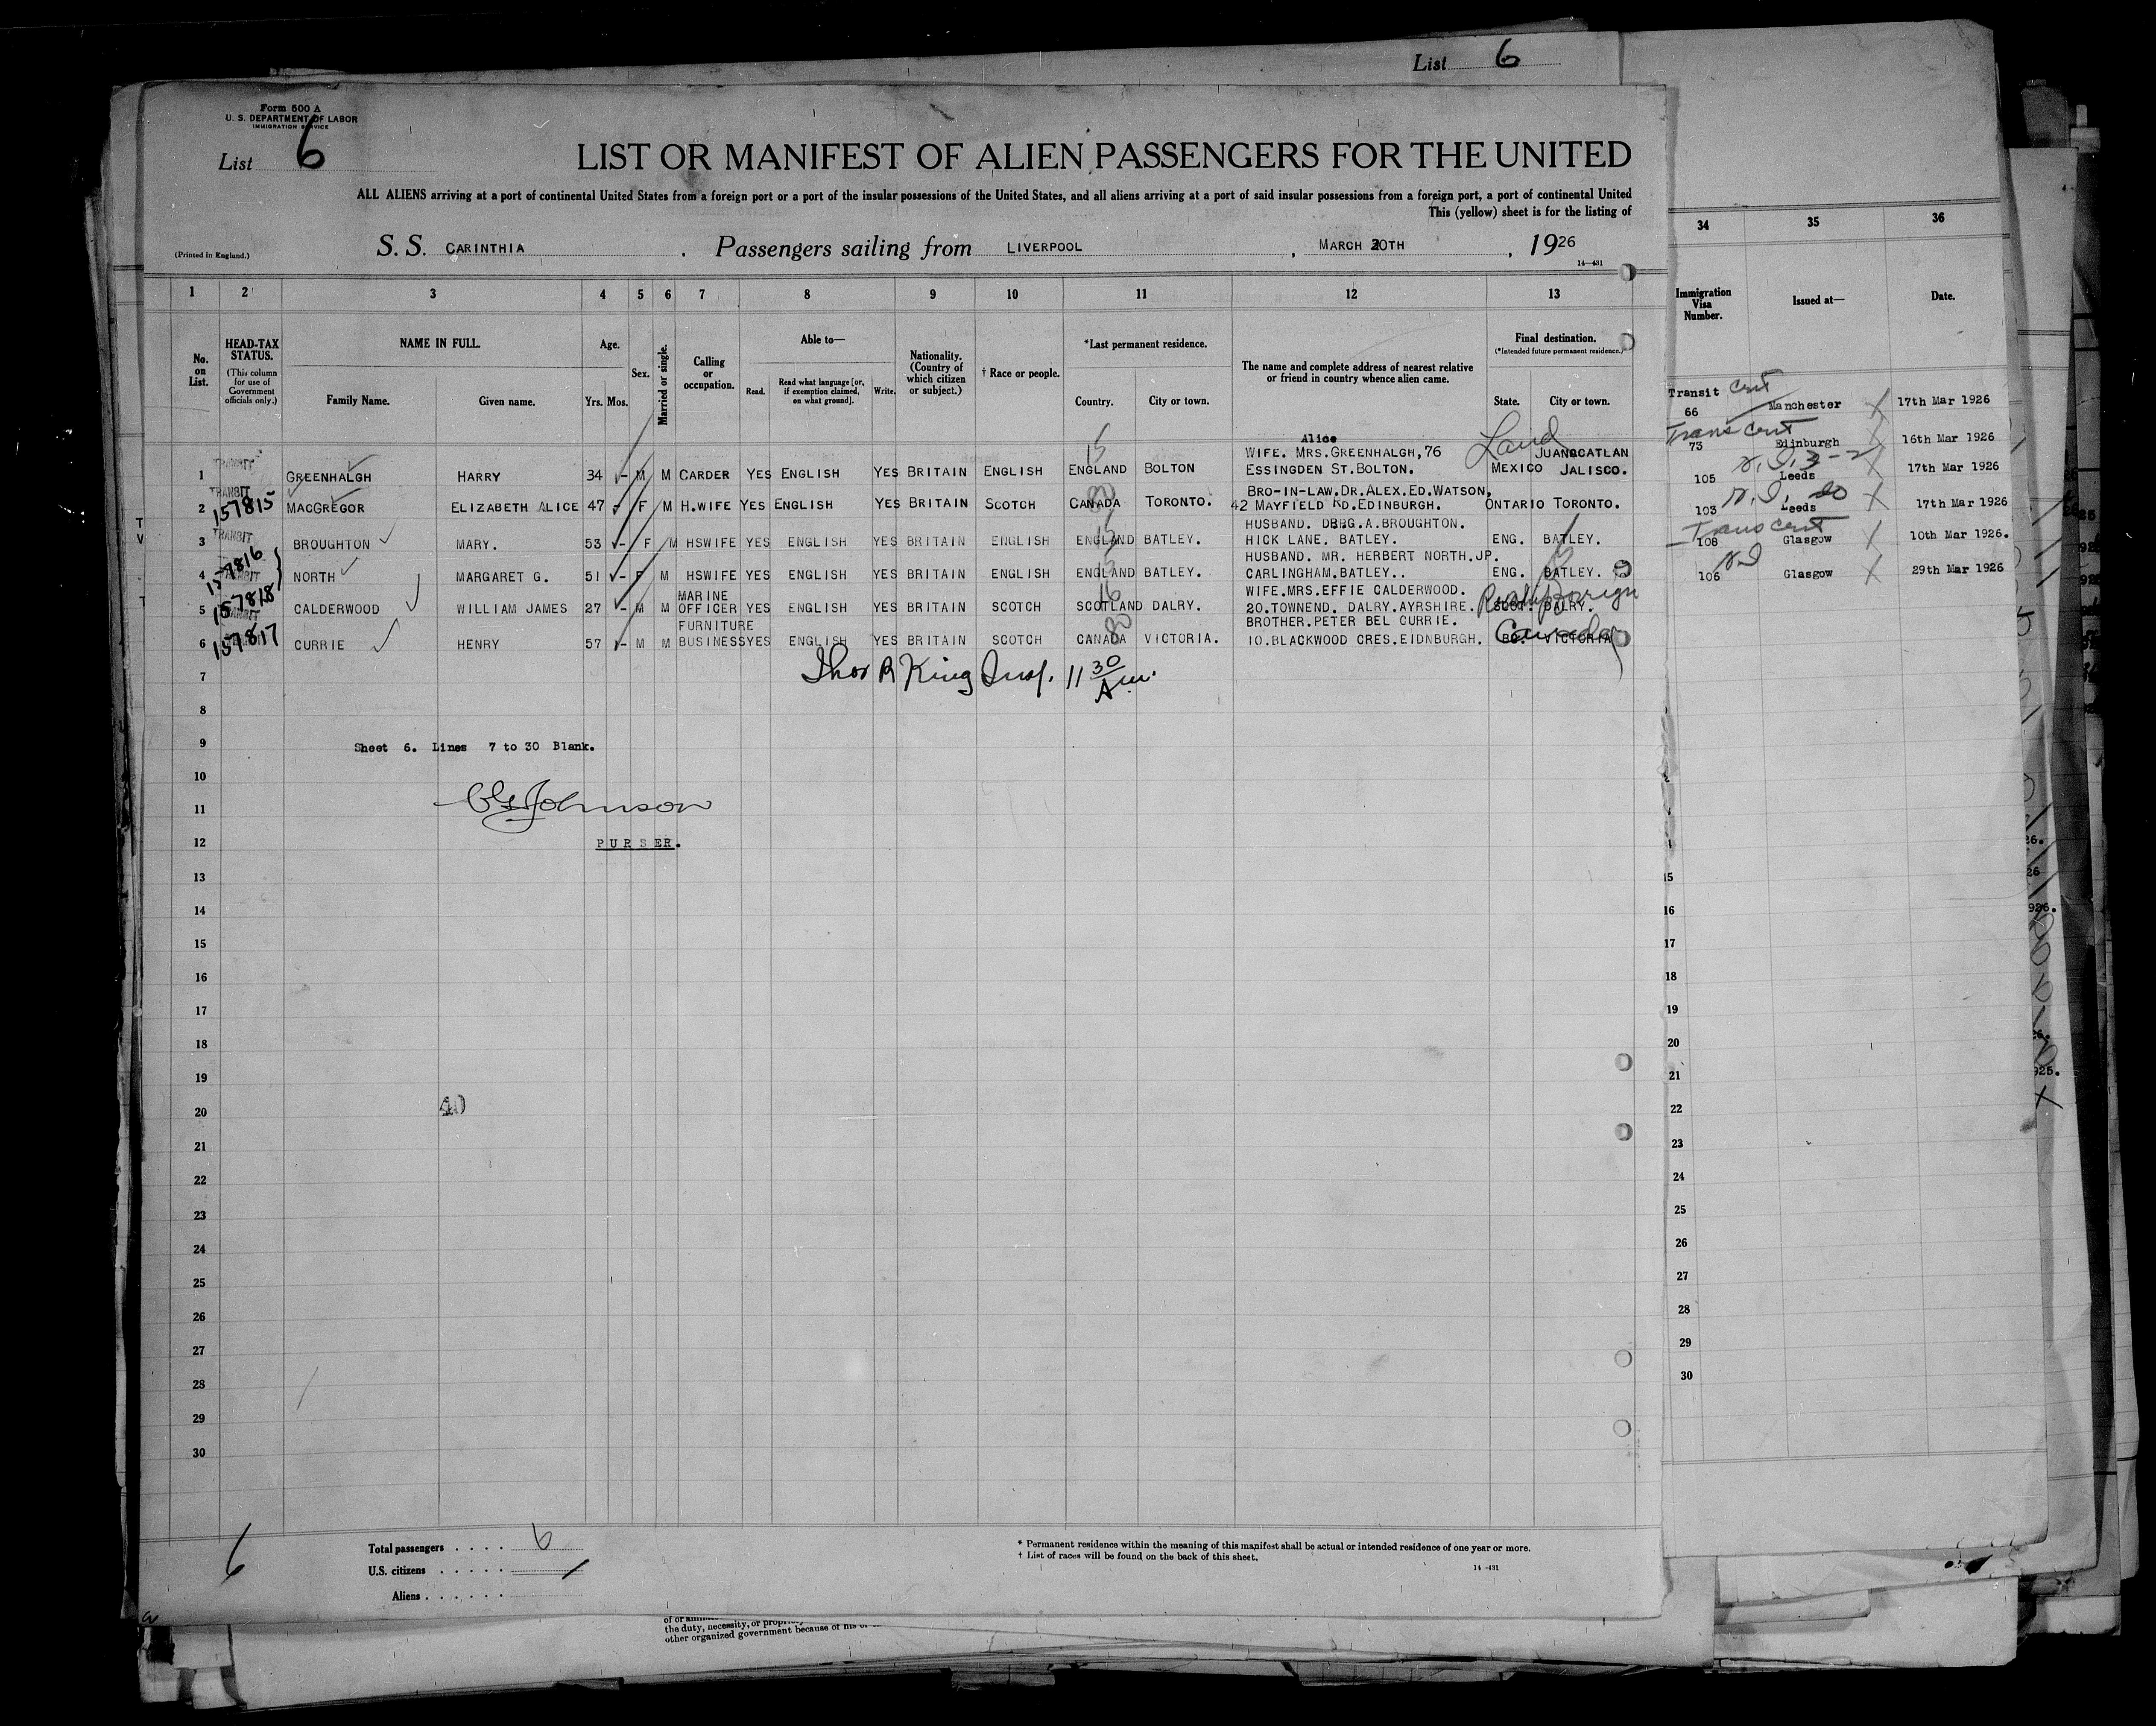 List 6
Form 500 A
U. S. DEPARTMENT OF LABOR
IMMIGRATION SERVICE
List 6
LIST OR MANIFEST OF ALIEN PASSENGERS FOR THE UNITED
ALL ALIENS arriving at a port of continental United States from a foreign port or a port of the insular possessions of the United States, and all aliens arriving at a port of said insular possessions from a foreign port, a port of continental United
This (yellow) sheet is for the listing of
(Printed in England.)
S. S. CARINTHIA . Passengers sailing from LIVERPOOL , MARCH 20TH , 1926
14—431
1 2 3 4 5 6 7 8 9 10 11 12 13
34 35 36
No. on List.
HEAD-TAX STATUS.
(This column for use of Government officials only.)
NAME IN FULL.
Family Name. Given name.
Age.
Yrs. Mos.
Sex.
Married or single.
Calling or occupation.
Able to—
Read. Read what language [or, if exemption claimed, on what ground]. Write.
Nationality. (Country of which citizen or subject.)
† Race or people.
*Last permanent residence.
Country. City or town.
The name and complete address of nearest relative or friend in country whence alien came.
Final destination.
(*Intended future permanent residence.)
State. City or town.
Immigration Visa Number.
Issued at—
Date.
Alice
Land
WIFE. MRS.GREENHALGH,76 JUANACATLAN
1 TRANSIT GREENHALGH HARRY 34 - M M CARDER YES ENGLISH YES BRITAIN ENGLISH ENGLAND BOLTON ESSINGDEN ST.BOLTON. MEXICO JALISCO.
15
BRO-IN-LAW.DR.ALEX.ED.WATSON,
2 TRANSIT 157815 MACGREGOR ELIZABETH ALICE 47 - F M H.WIFE YES ENGLISH YES BRITAIN SCOTCH CANADA TORONTO. 42 MAYFIELD RD.EDINBURGH. ONTARIO TORONTO.
HUSBAND. DR.G.A.BROUGHTON.
3 TRANSIT BROUGHTON MARY. 53 - F M HSWIFE YES ENGLISH YES BRITAIN ENGLISH ENGLAND BATLEY. HICK LANE. BATLEY. ENG. BATLEY.
157816
HUSBAND. MR. HERBERT NORTH.JP.
4 TRANSIT NORTH MARGARET G. 51 - F M HSWIFE YES ENGLISH YES BRITAIN ENGLISH ENGLAND BATLEY. CARLINGHAM.BATLEY.. ENG. BATLEY.
157818
MARINE WIFE.MRS.EFFIE CALDERWOOD.
5 TRANSIT CALDERWOOD WILLIAM JAMES 27 - M M OFFICER YES ENGLISH YES BRITAIN SCOTCH SCOTLAND DALRY. 20.TOWNEND. DALRY.AYRSHIRE. SCOT. DALRY.
16
FURNITURE BROTHER.PETER BEL CURRIE.
6 157817 CURRIE HENRY 57 - M M BUSINESS YES ENGLISH YES BRITAIN SCOTCH CANADA VICTORIA. 10.BLACKWOOD CRES.EIDNBURGH. BC. VICTORIA
Canada
Thos R King Insp. 11 30 Am.
7
8
9
Sheet 6. Lines 7 to 30 Blank.
10
11
Johnson
12
PURSER.
13
14
15
16
17
18
19
20
40
21
22
23
24
25
26
27
28
29
30
Transit Cert
66 Manchester 17th Mar 1926
Trans Cert
73 Edinburgh 16th Mar 1926
105 Leeds 17th Mar 1926
103 Leeds 17th Mar 1926
Trans Cert
108 Glasgow 10th Mar 1926.
106 Glasgow 29th Mar 1926
15
16
17
18
19
20
21
22
23
24
25
26
27
28
29
30
6
Total passengers . . . . 6
U.S. citizens . . . . .
Aliens . . . . . .
* Permanent residence within the meaning of this manifest shall be actual or intended residence of one year or more.
† List of races will be found on the back of this sheet.
14—431
the duty, necessity, or
other organized government because of his